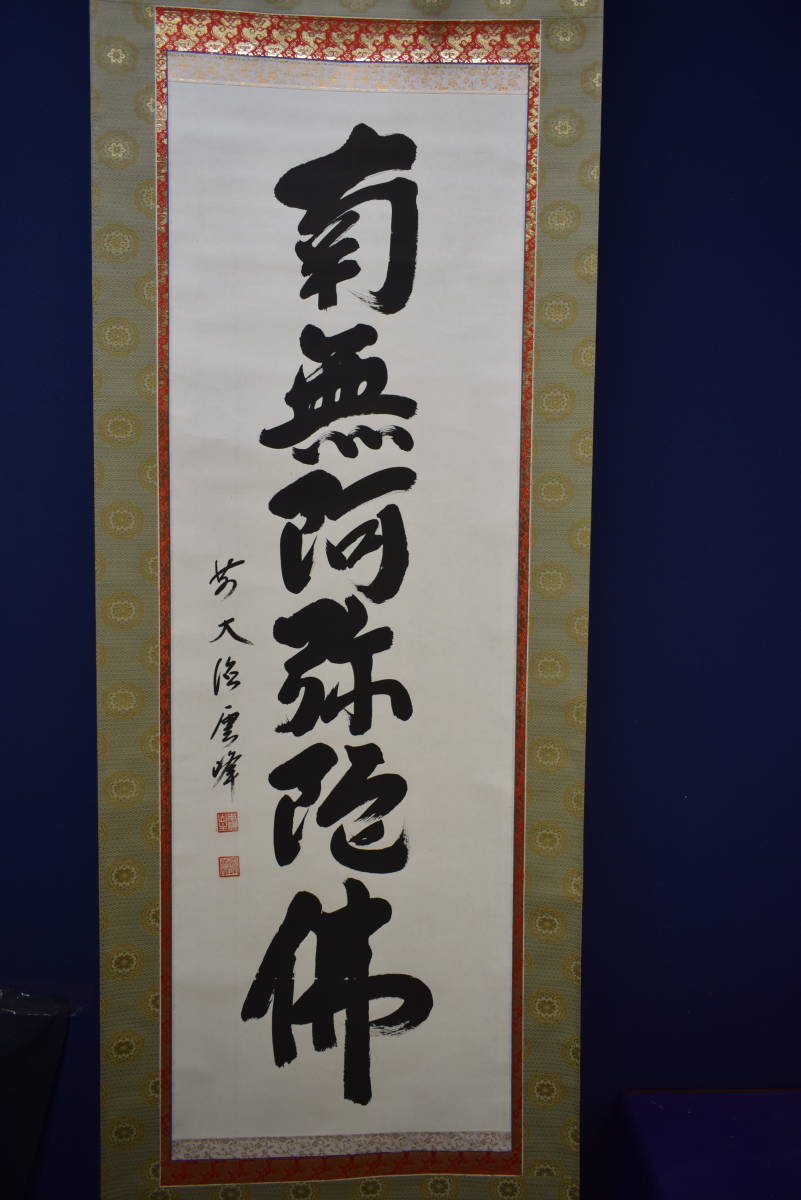 南無阿弥陀佛
前大徳雲峰